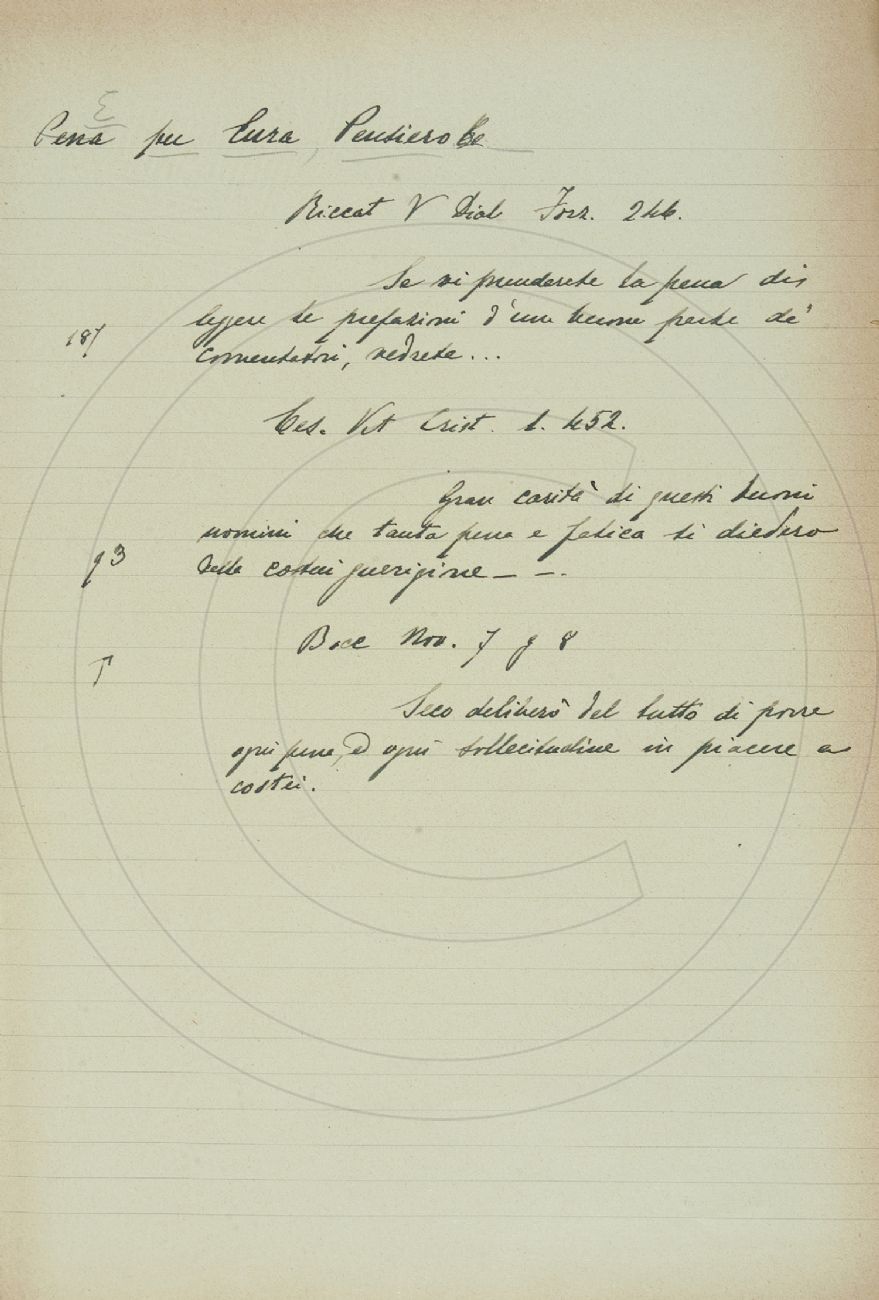 E
Pena per Cura, Pensiero &c
Riccat V Dial Forz. 246.
Se vi prenderete la pena di
leggere le prefazioni d'una buona parte de'
187
comentatori, vedrete...
Ces. Vit Crist. 1. 452.
Gran carità di questi buoni
uomini che tanta pena e fatica si diedero
93
della costui guerigione - - .
Bocc Nov. 7 g 8
Seco deliberò del tutto di porre
ogni pena, ed ogni sollecitudine in piacere a
costei.